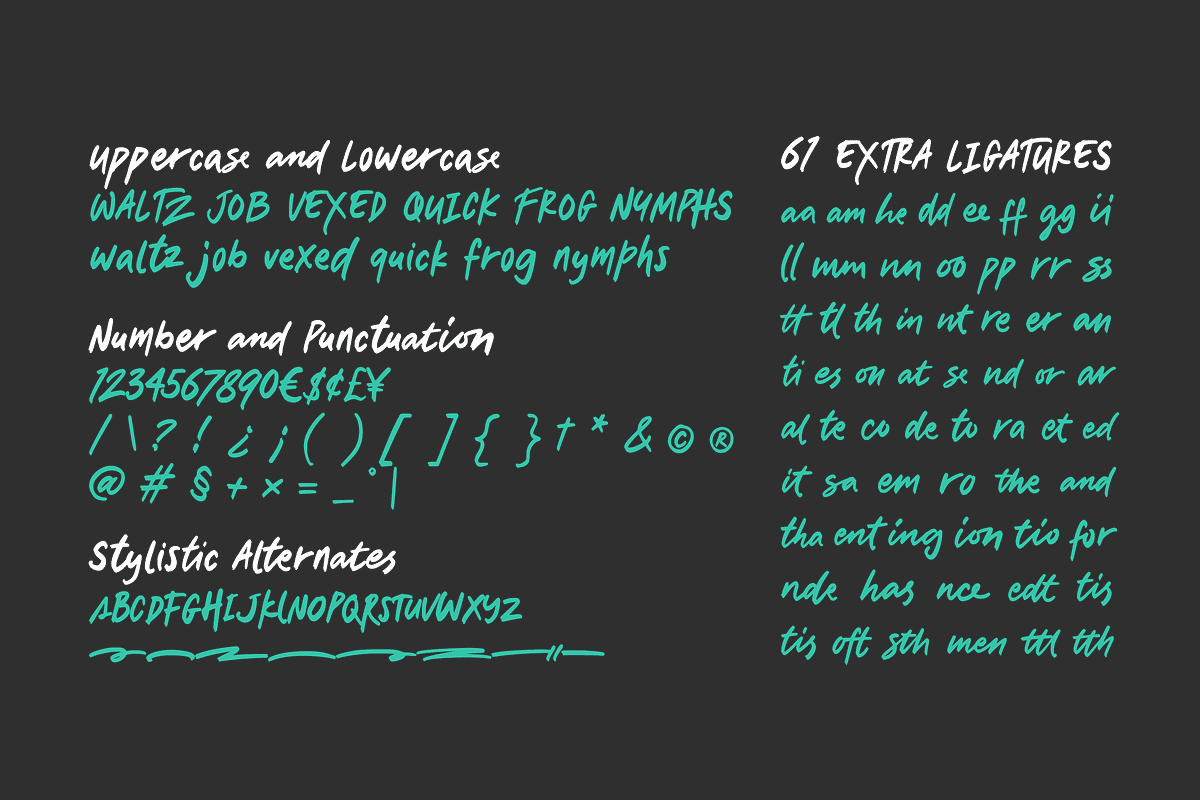 Uppercase and Lowercase
WALTZ JOB VEXED QUICK FROG NYMPHS
waltz job vexed quick frog nymphs
Number and Punctuation
1234567890€$¢£¥
/ \ ? ! ¿ ¡ ( ) [ ] { } † * & © ®
@ # § + × = _ ° |
Stylistic Alternates
ABCDFGHIJKLNOPQRSTUVWXYZ
61 EXTRA LIGATURES
aa am he dd ee ff gg ii
ll mm nn oo pp rr ss
tt tl th in nt re er an
ti es on at se nd or ar
al te co de to ra et ed
it sa em ro the and
tha ent ing ion tio for
nde has nce edt tis
tis oft sth men ttl tth